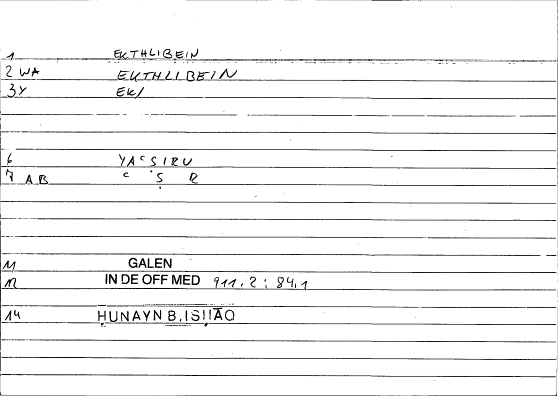 1 EKTHLIBEIN
2 WA EKTHLIBEIN
3Y EK/
6 YAᶜṢIRU
7 AB ᶜ Ṣ R
11 GALEN
12 IN DE OFF MED 911.2 ; 84.1
14 ḤUNAYN B. ISḤĀQ